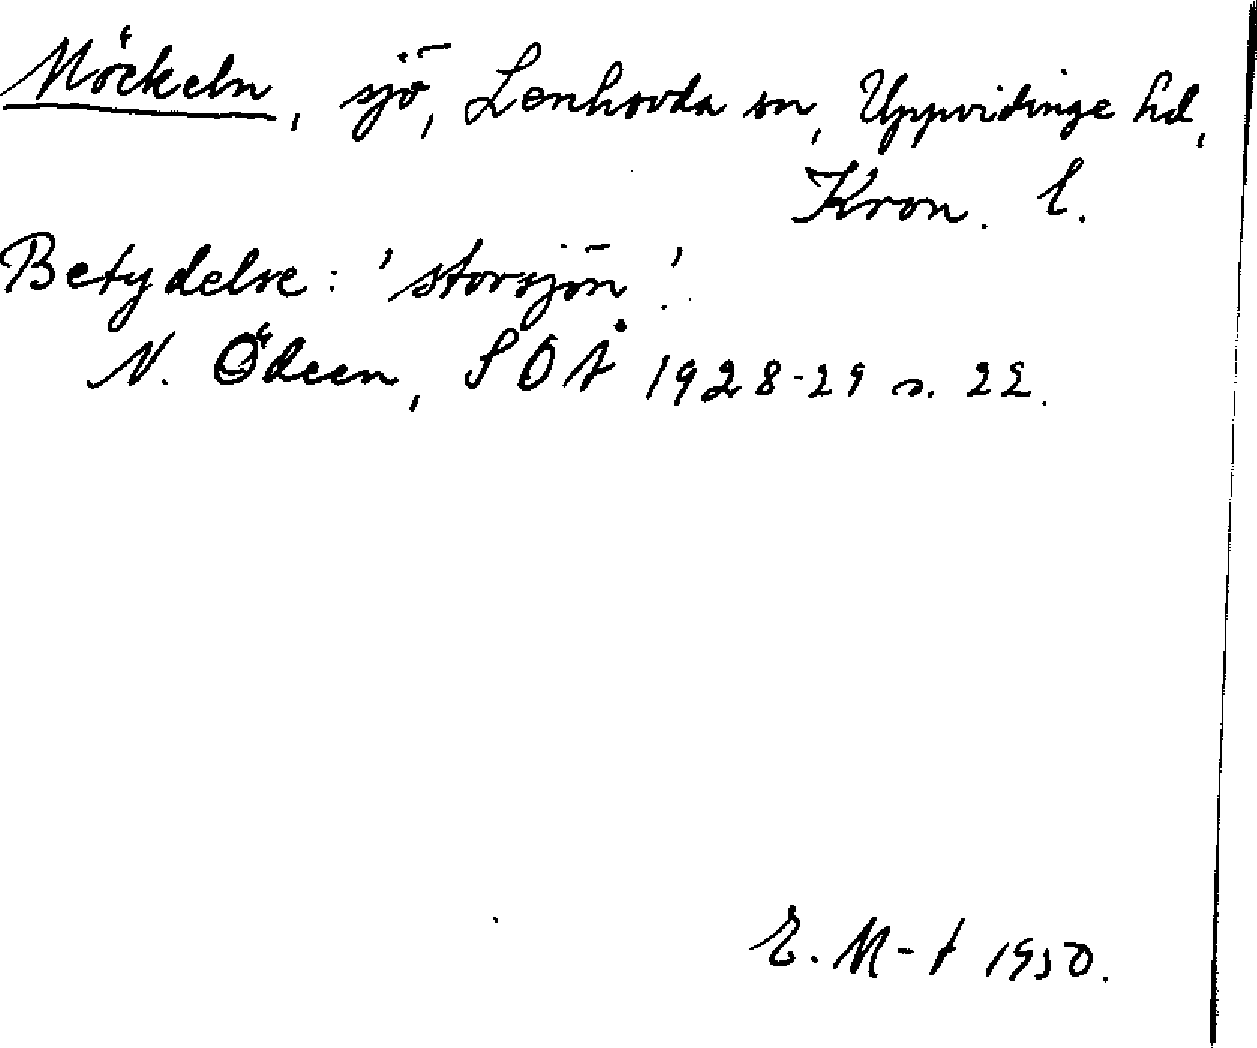 Möckeln, sjö, Lenhovda sn, Uppvidinge hd,
Kron. l.
Betydelse: 'storsjön'.
N. Ödeen, SOÅ 1928-29 s. 22.
E. M-t 1950.